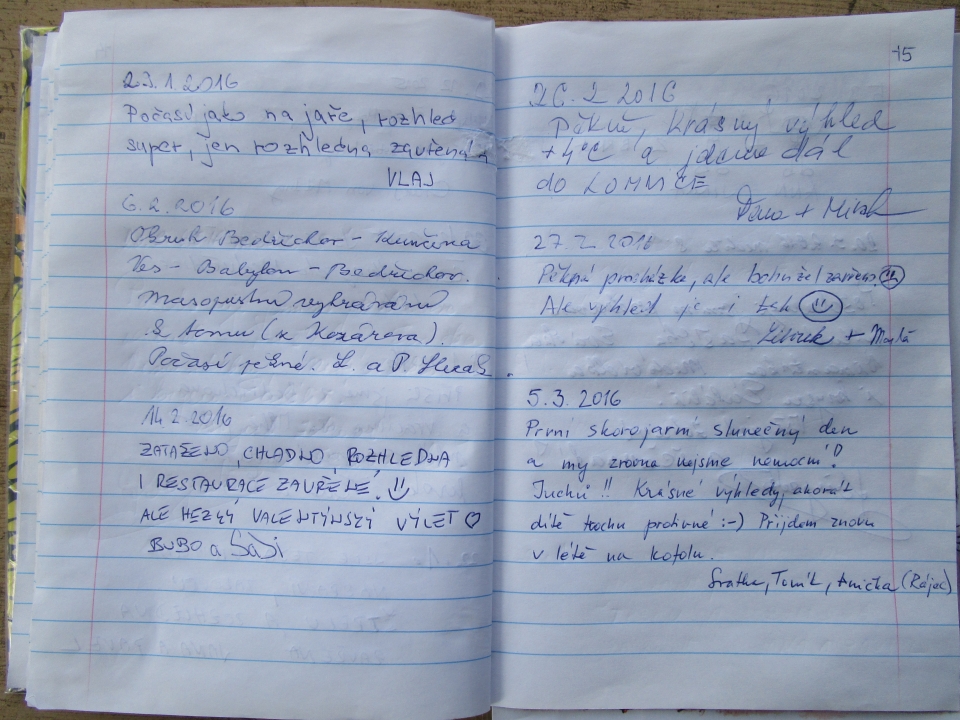 23.1.2016
Počasí jako na jaře, rozhled
super, jen rozhledna zavřená
VLAJ
6.2.2016
Okruh Bedřichov - Kunčina
Ves - Babylon - Bedřichov.
Masopustní vykračování
k tomu (z Kozárova).
Počasí a P.
14.2.2016
ZATAŽENO, CHLADNO, ROZHLEDNA
I RESTAURACE ZAVŘENÉ!
ALE HEZKÝ VALENTÝNSKÝ VÝLET
BUBO a
15
26.2 2016
Pěkně, krásný výhled
+4°C a jdeme dál
do LOMNICE
+ Mirek
27.2 2016
Pěkná procházka, ale bohužel zavřeno.
Ale výhled je i tak
+
5.3.2016
První skorojarní slunečný den
a my zrovna nejsme nemocní!
Juchů!! Krásné výhledy, akorát
dítě trochu protivné :-) Přijdem znovu
v létě na kofolu.
Tomík, Anička (Rájec)